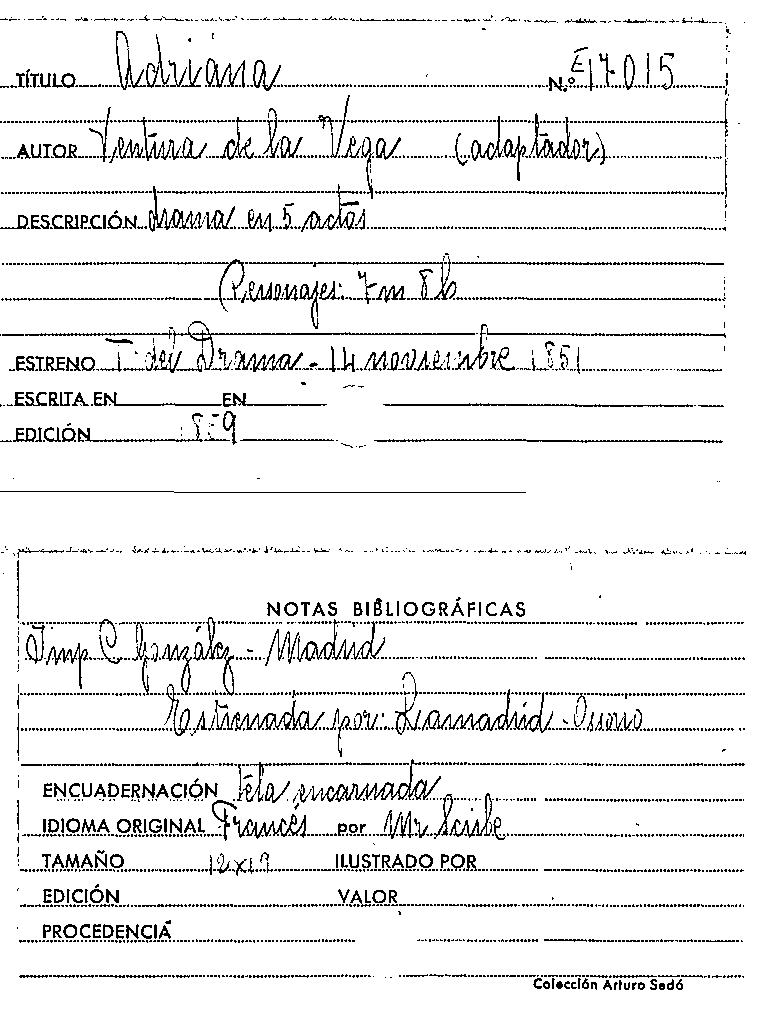 TÍTULO Adriana N.º E17015
AUTOR Ventura de la Vega (adaptador)
DESCRIPCIÓN drama en 5 actos
(Personajes: 7m 8h
ESTRENO T. del Drama - 14 noviembre 1851
ESCRITA EN EN
EDICIÓN
NOTAS BIBLIOGRÁFICAS
Imp C González - Madrid
Estrenada por: Lamadrid - Osorio
ENCUADERNACIÓN tela encarnada
IDIOMA ORIGINAL Francés por Mr Scribe
TAMAÑO 12x19 ILUSTRADO POR
EDICIÓN VALOR
PROCEDENCIA
Colección Arturo Sedó